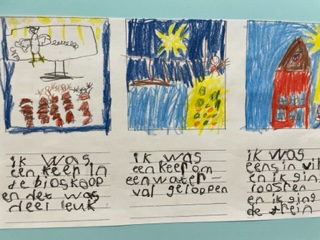 ik was
een keer in
de bioskoop
en det was
deel leuk
ik was
een keer om
een water-
val geloppen
ik was
eens in vil
en ik gin
roosten
en ik ging
de trein